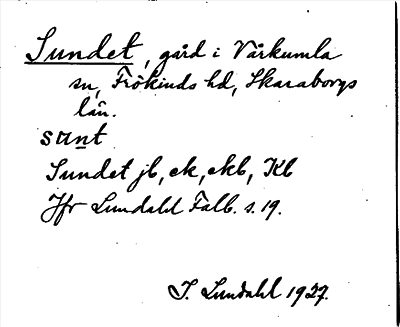 Sundet, gård i Vårkumla
sn, Frökinds hd, Skaraborgs
län.
sɯnt
Sundet jb, ek, ekb, Kb
Jfr Lundahl Falb. s. 19.
I. Lundahl 1927.